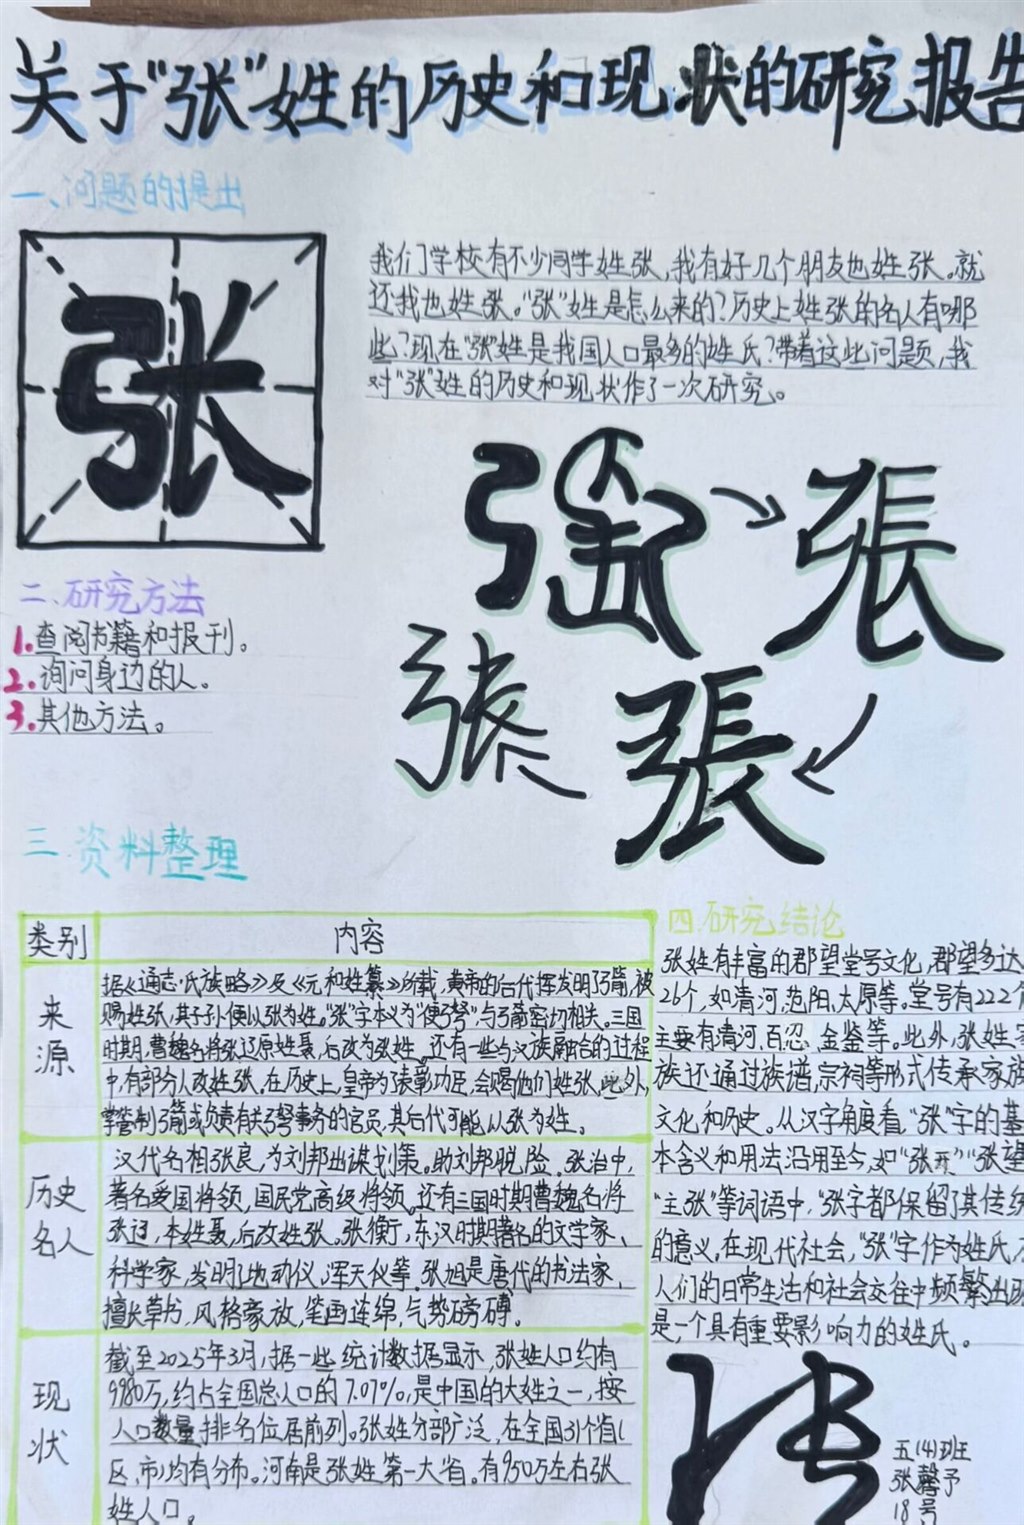 关于“张”姓的历史和现状的研究报告
一、问题的提出
张
我们学校有不少同学姓张,我有好几个朋友也姓张。就
连我也姓张。“张”姓是怎么来的?历史上姓张的名人有哪
些?现在“张”姓是我国人口最多的姓氏?带着这些问题,我
对“张”姓的历史和现状作了一次研究。
張
张
張
二、研究方法
1.查阅书籍和报刊。
2.询问身边的人。
3.其他方法。
三、资料整理
类别 内容
来源
据《通志·氏族略》及《元和姓纂》所载,黄帝的后代挥发明弓箭,被
赐姓张,其子孙便以张为姓。“张”字本义为“使弓弩”与弓箭密切相关。三国
时期,曹魏名将张辽原姓聂,后改为张姓。还有一些与汉族融合的过程
中,有部分人改姓张。在历史上,皇帝为表彰功臣,会赐他们姓张,此外,
掌管制弓箭或负责有关弓弩事务的官员,其后代可能以张为姓。
历史名人
汉代名相张良,为刘邦出谋划策。助刘邦脱险。张治中,
著名爱国将领,国民党高级将领。还有三国时期曹魏名将
张辽,本姓聂,后改姓张。张衡,东汉时期著名的文学家、
科学家,发明了地动仪、浑天仪等。张旭是唐代的书法家,
擅长草书,风格豪放,笔画连绵,气势磅礴。
现状
截至2025年3月,据一些统计数据显示,张姓人口约有
9980万,约占全国总人口的7.07%,是中国的大姓之一,按
人口数量排名位居前列。张姓分部广泛,在全国31个省(
区、市)均有分布。河南是张姓第一大省。有950万左右张
姓人口。
四、研究结论
张姓有丰富的郡望堂号文化,郡望多达
26个,如清河,范阳,太原等。堂号有222个
主要有清河、百忍、金鉴等。此外,张姓家
族还通过族谱、宗祠等形式传承家族
文化和历史。从汉字角度看,“张”字的基
本含义和用法沿用至今,如“张开”“张望”
“主张”等词语中,“张字都保留了其传统
的意义。在现代社会,“张”字作为姓氏,在
人们的日常生活和社会交往中频繁出现
是一个具有重要影响力的姓氏。
张
五(4)班
张馨予
18号